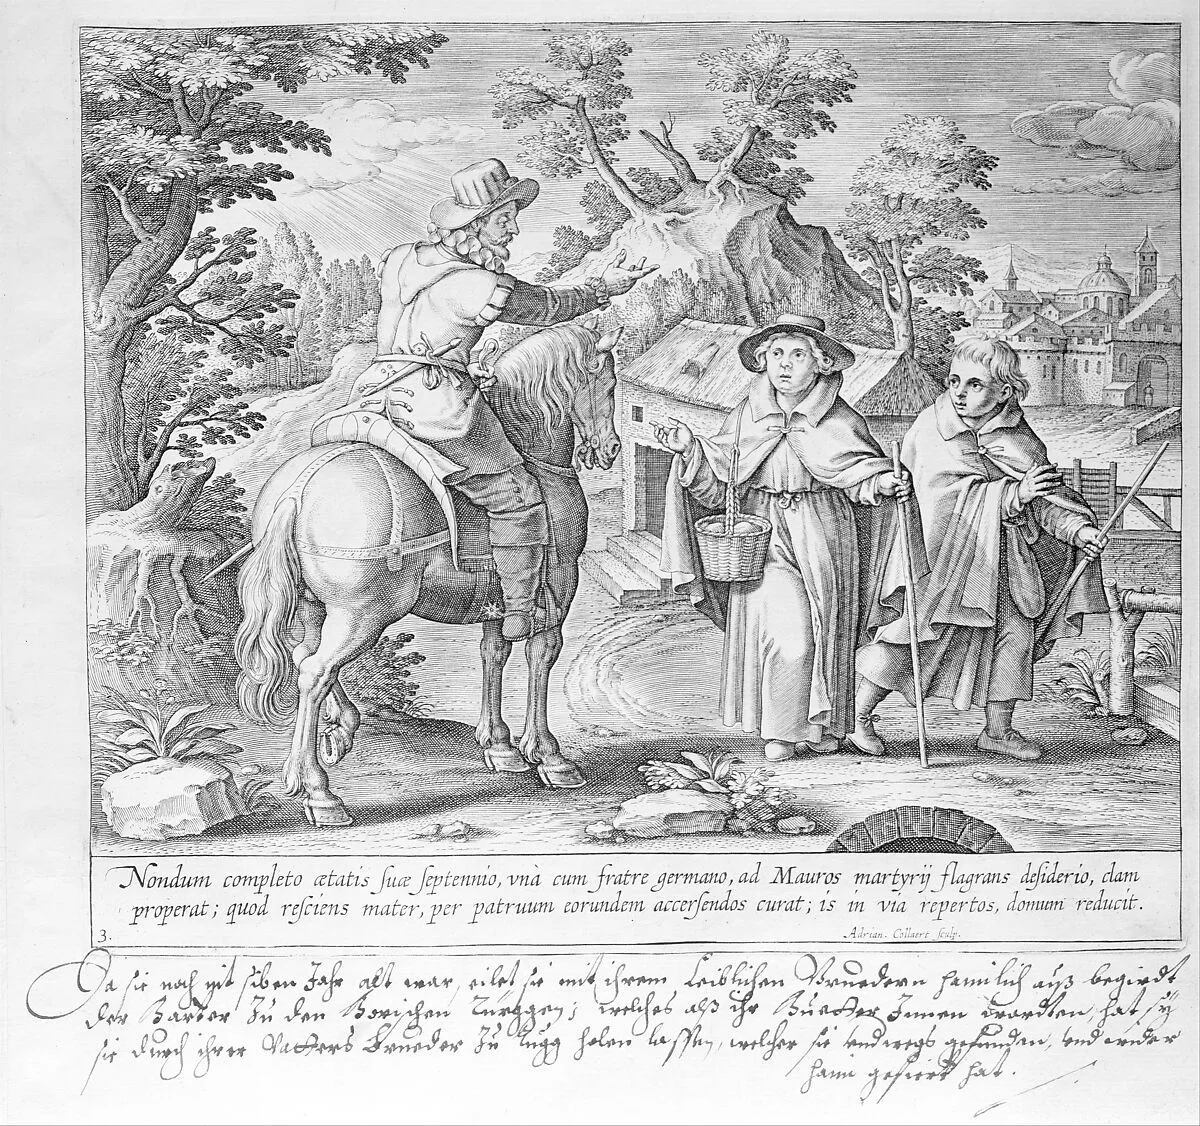 Nondum completo ætatis suæ septennio, vnà cum fratre germano, ad Mauros martyrij flagrans desiderio, clam
properat; quod resciens mater, per patruum eorundem accersendos curat; is in via repertos, domum reducit.
3.
Adrian. Collaert sculp.
Da sie noch nit siben Jahr alt war, eilet sie mit ihrem Leiblichen Bruedern haimlich auß begirdt
der Marter Zu den Morischen Türggen; welches alß ihr Muetter Innen worden, hat sÿ
sie durch ihrer Vatters Brueder Zu rugg holen lassen, welcher sie underwegs gefunden, und wider
haim gefiert hat.